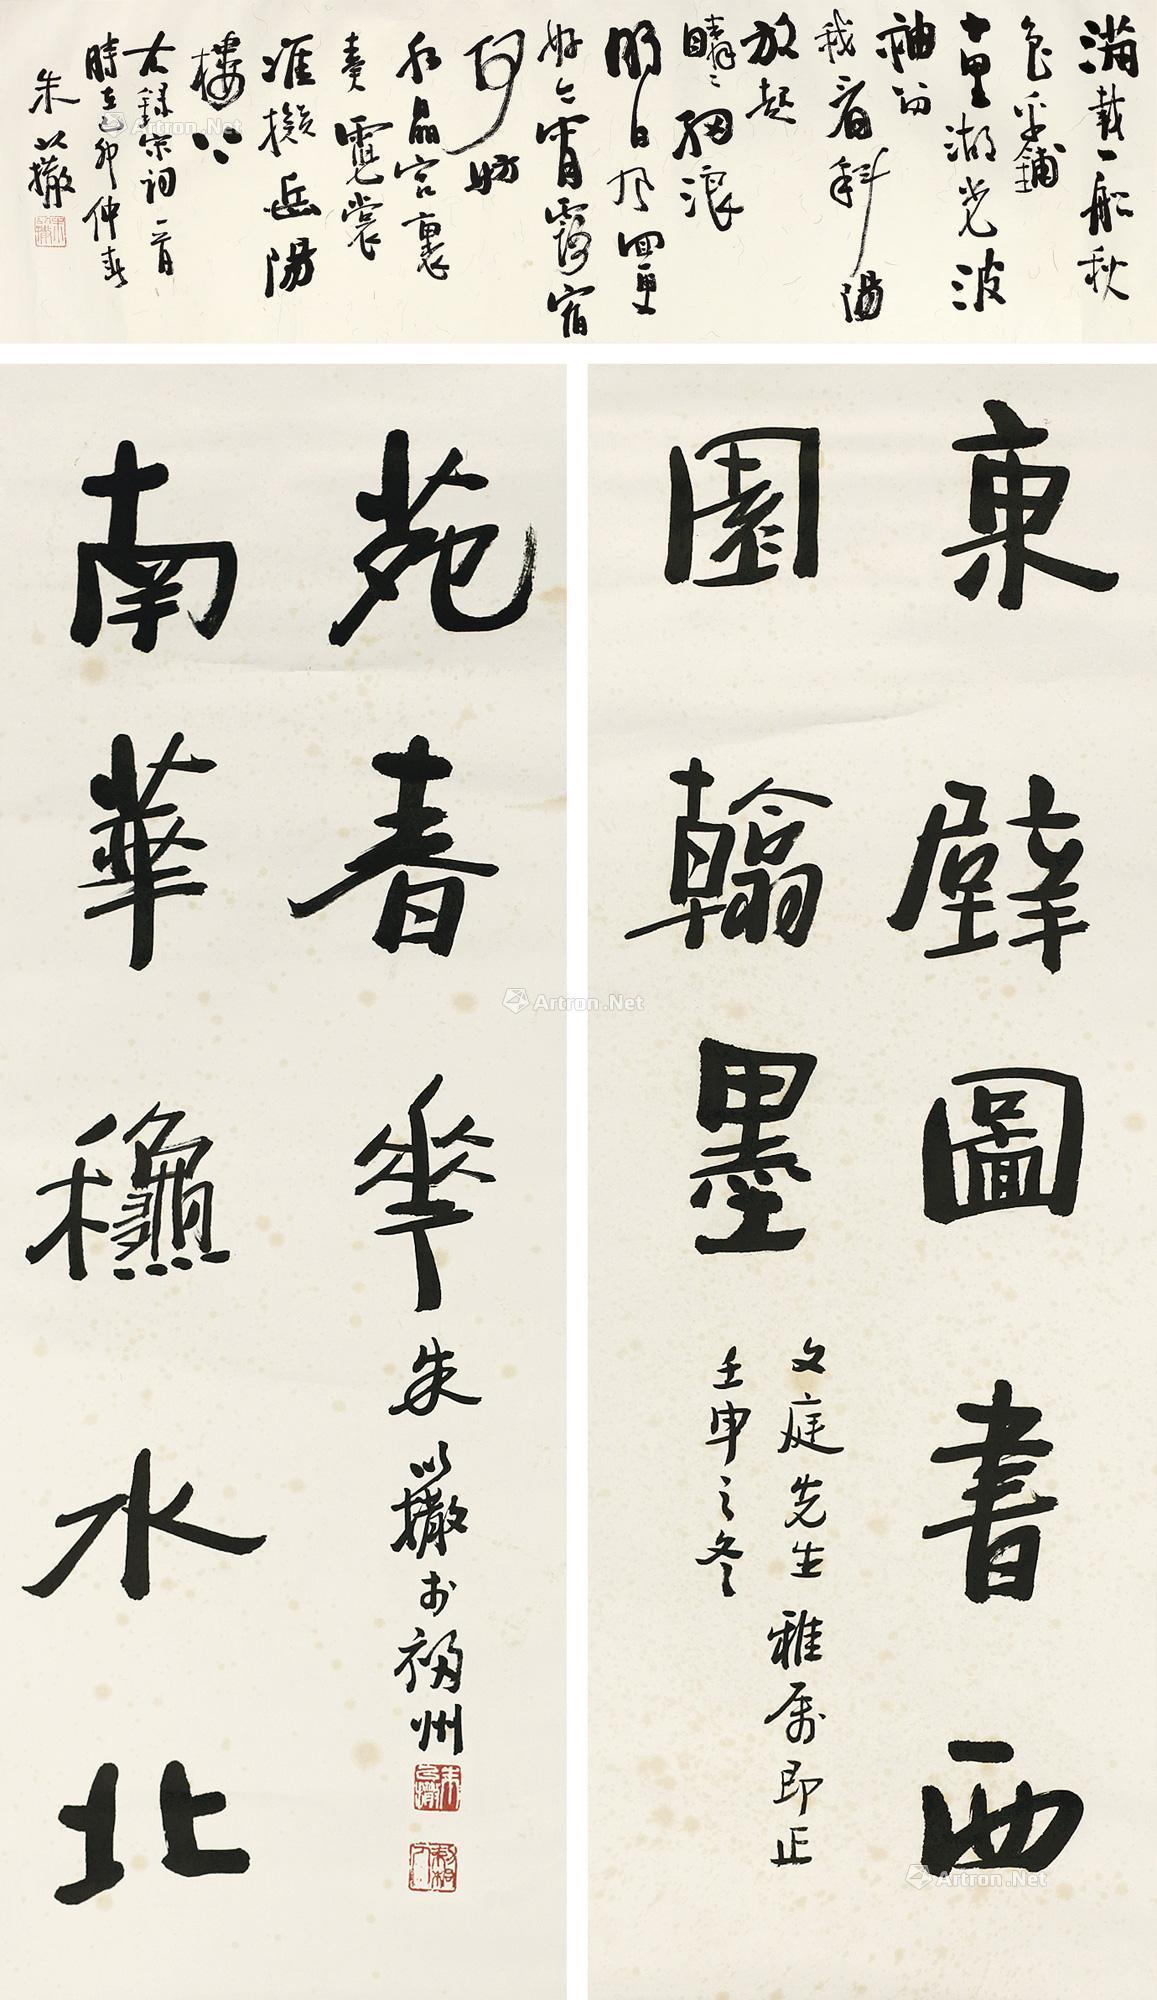 滿載一船秋
色平鋪
十里湖光波
神留
我看斜陽
放起
鱗〻細浪
明日風回更
好今宵露宿
何妨
水晶宮裏
奏霓裳
准擬岳陽
樓上
右錄宋詞一首
時在己卯仲春
朱以撒
朱以撒
東壁圖書西
園翰墨
文庭先生雅属即正
壬申之冬
南華龝水北
苑春華
朱以撒於福州
朱以撒
Artron.Net
Artron.Net
Artron.Net